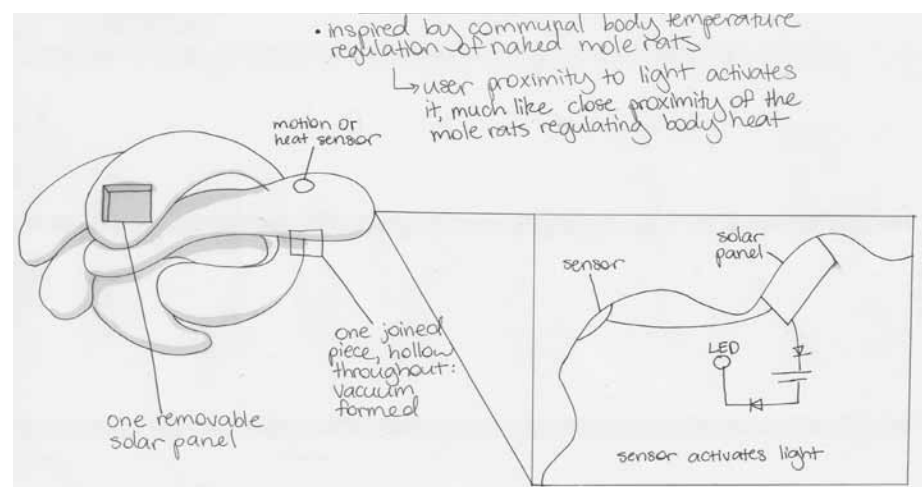 • inspired by communal body temperature
regulation of naked mole rats
↳ user proximity to light activates
it, much like close proximity of the
mole rats regulating body heat
motion or
heat sensor
one removable
solar panel
one joined
piece, hollow
throughout:
vacuum
formed
sensor
solar
panel
LED
sensor activates light